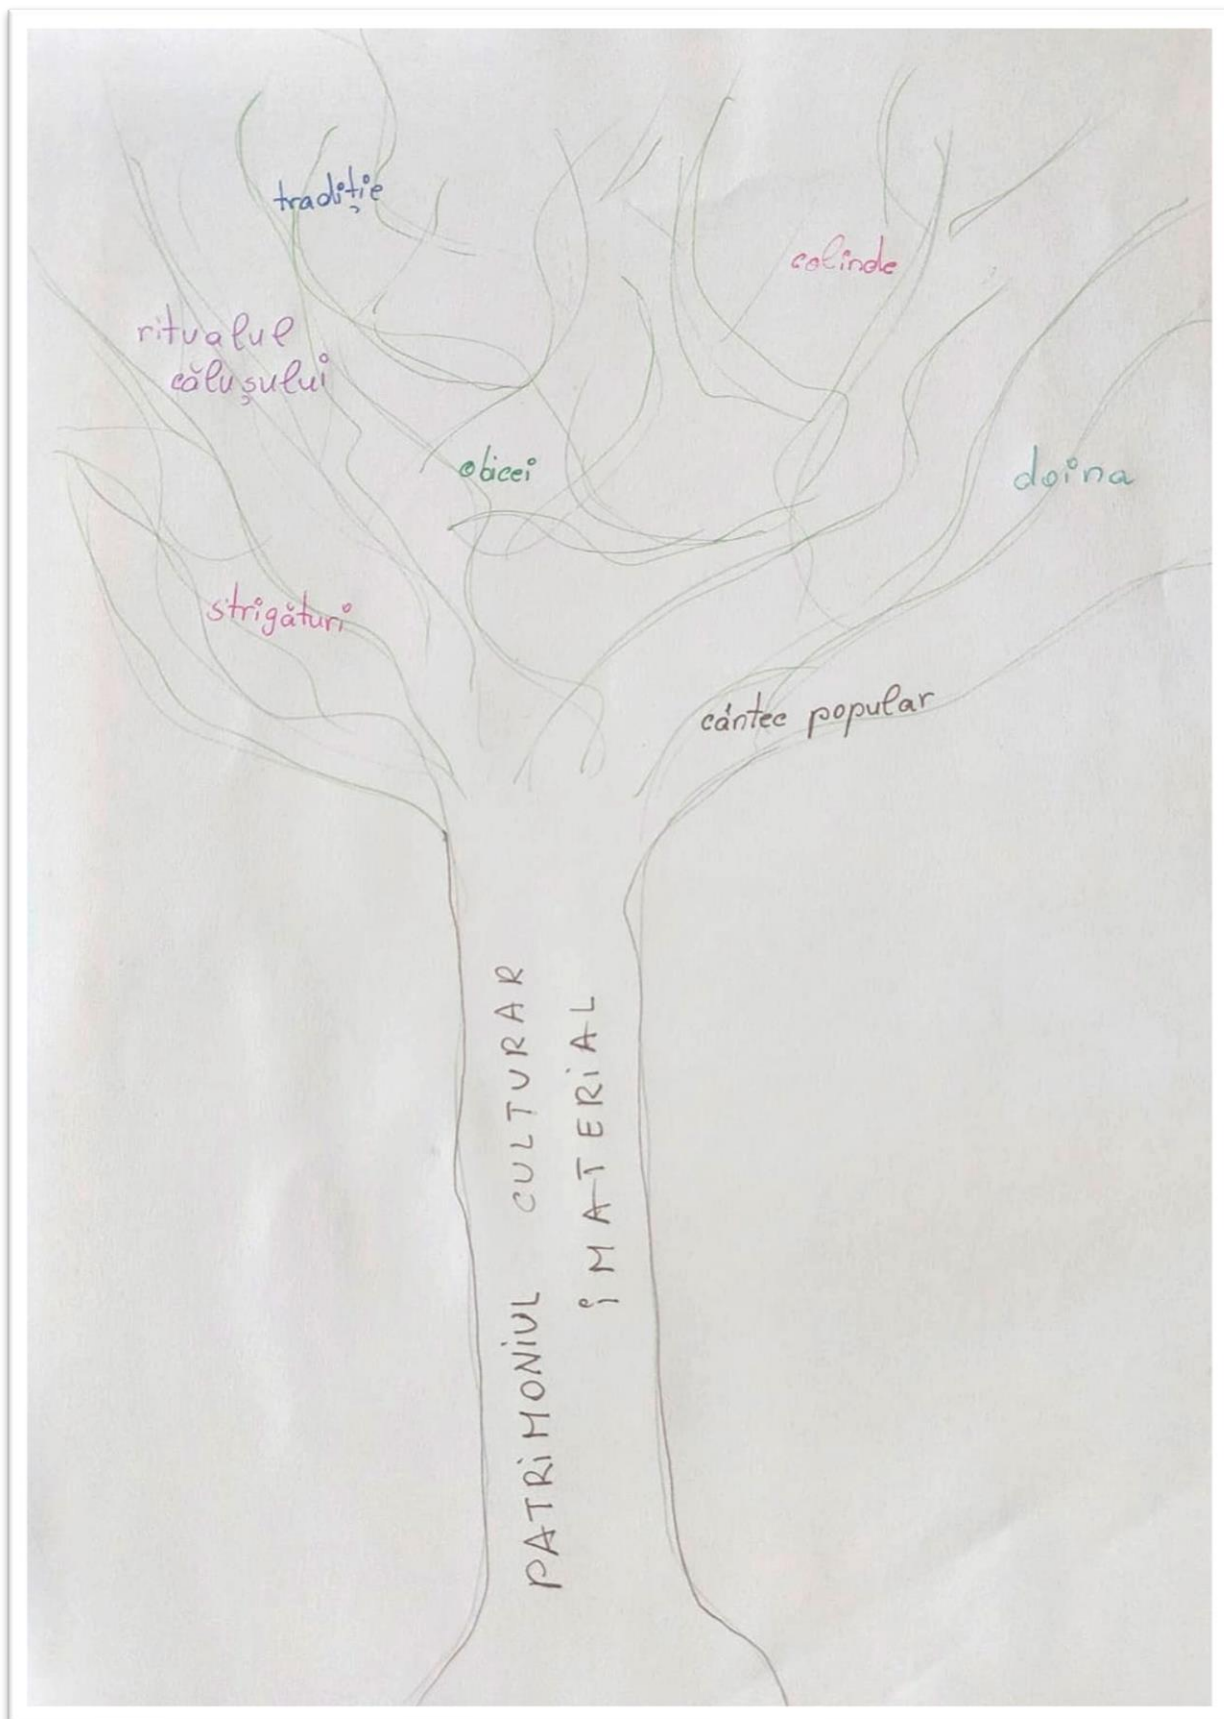 tradiție
colinde
ritualul
călușului
obicei
doina
strigături
cântec popular
PATRIMONIUL CULTURAR
IMATERIAL